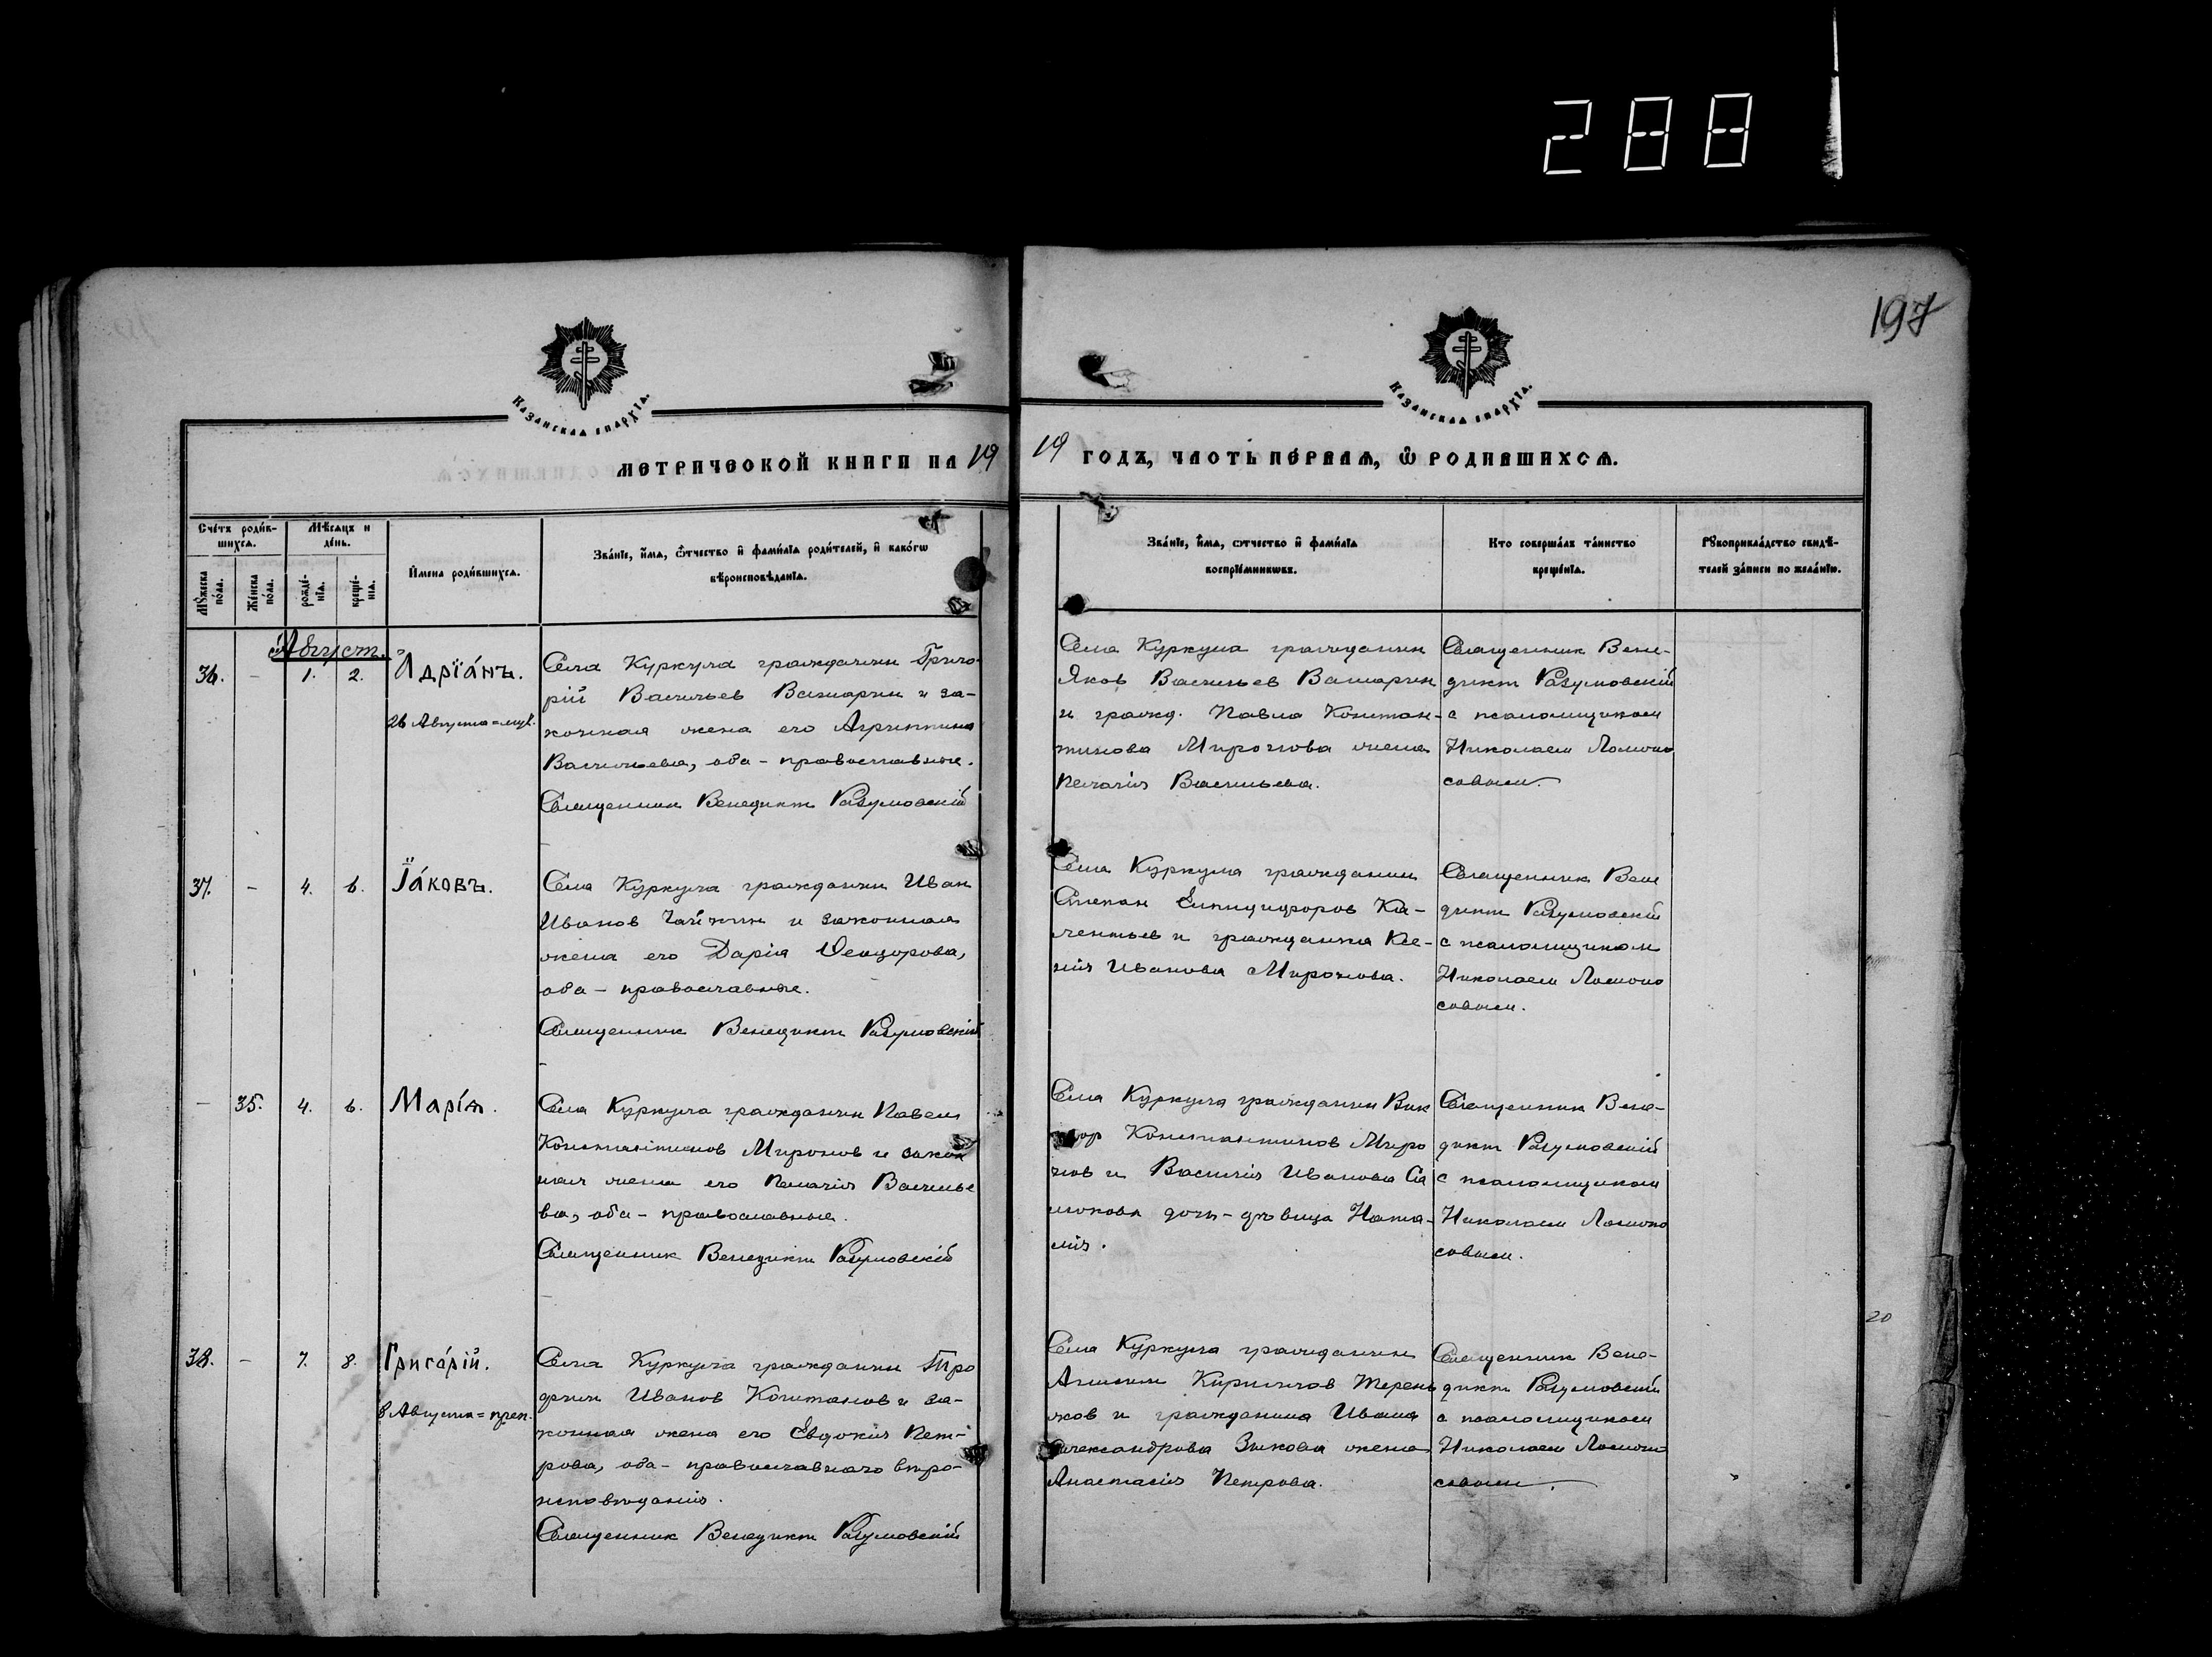 288
197
Казанская епархїа.
Казанская епархїа.
МЕТРИЧЕСКОЙ КНИГИ НА 19
19 ГОДЪ, ЧАСТЬ ПЕ́РВАѦ, Ѡ РОДИВШИХСѦ.
Сче́тъ роди́в-
шихсѧ.
Мѣ́сѧцъ и
де́нь.
Мꙋ́жеска по́ла.
Же́нска по́ла.
рожде́-нїѧ.
креще́-нїѧ.
И҆мена роди́вшихсѧ.
Зва́нїе, и҆́мѧ, ѻ҆́тчество и҆ фами́лїѧ роди́телей, и҆ како́гѡ
вѣроисповѣ́данїѧ.
Зва́нїе, и҆́мѧ, ѻ҆́тчество и҆ фами́лїѧ
воспрїе́мникѡвъ.
Кто соверша́лъ та́инство
креще́нїѧ.
Рꙋкоприкла́дство свидѣ́-
телей за́писи по жела́нїю.
Август.
36. - 1. 2. Адрїа́нъ.
26 Августа = муч.
Села Куркула гражданин Григо-
рій Васильев Вашарин и за-
конная жена его Агриппина
Васильева, оба - православные.
Священник Венедикт Разумовскій
Села Куркула гражданин
Яков Васильев Вашарин
и гражд. Павла Констан-
тинова Миронова жена
Пелагія Васильева.
Священник Вене-
дикт Разумовскій
с псаломщиком
Николаем Ломоно
совым.
37. - 4. 6. І҆а́ковъ.
Села Куркула гражданин Иван
Иванов Чайкин и законная
жена его Дарія Ѳеодорова,
оба - православные.
Священник Венедикт Разумовскій
Села Куркула гражданин
Степан Епидифоров Ка-
лентьев и гражданка Ксе-
нія Иванова Миронова.
Священник Вене
дикт Разумовскій
с псаломщиком
Николаем Ломоно
совым.
- 35. 4. 6. Марі́ѧ.
Села Куркула гражданин Павел
Константинов Миронов и закон
ная жена его Пелагія Василье
ва, оба - православные.
Священник Венедикт Разумовскій
Села Куркула гражданин Вик
тор Константинов Миро
нов и Василія Иванова
дочь - дѣвица Ната-
лія.
Священник Вене-
дикт Разумовскій
с псаломщиком
Николаем Ломоно
совым.
38. - 7. 8. Григо́рій.
8 Августа = преп.
Села Куркула гражданин Тро
фим Иванов Коштанов и за-
конная жена его Евдокія Пет-
рова, оба - православнаго вѣро-
исповѣданія.
Священник Венедикт Разумовскій
Села Куркула гражданин
Кирилов Терень
жов и гражданина Ивана
Александрова Зыкова жена
Анастасія Петрова.
Священник Вене-
дикт Разумовскій
с псаломщиком
Николаем Ломоно
совым.
20